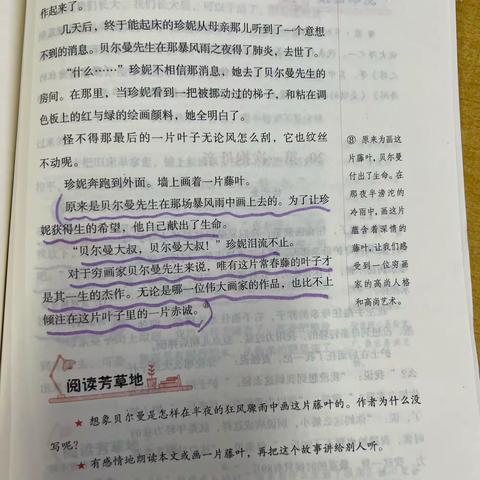 作起来了。
几天后，终于能起床的珍妮从母亲那儿听到了一个意想
不到的消息。贝尔曼先生在那暴风雨之夜得了肺炎，去世了。
“什么……”珍妮不相信那消息，她去了贝尔曼先生的
房间。在那里，当珍妮看到一把被挪动过的梯子，和粘在调
色板上的红与绿的绘画颜料，她全明白了。
怪不得那最后的一片叶子无论风怎么刮，它也纹丝
不动呢。
珍妮奔跑到外面。墙上画着一片藤叶。
原来是贝尔曼先生在那场暴风雨中画上去的。为了让珍
妮获得生的希望，他自己献出了生命。
“贝尔曼大叔，贝尔曼大叔！”珍妮泪流不止。
对于穷画家贝尔曼先生来说，唯有这片常春藤的叶子才
是其一生的杰作。无论是哪一位伟大画家的作品，也比不上
倾注在这片叶子里的一片赤诚。⑧
⑧ 原来为画这
片藤叶，贝尔曼
付出了生命。在
那夜半滂沱的
冷雨中，画这片
蕴含着深情的
藤叶，让我们感
受到一位穷画
家的高尚人格
和高尚艺术。
阅读芳草地
★ 想象贝尔曼是怎样在半夜的狂风骤雨中画这片藤叶的。作者为什么没
写呢？
★ 有感情地朗读本文或画一片藤叶，再把这个故事讲给别人听。